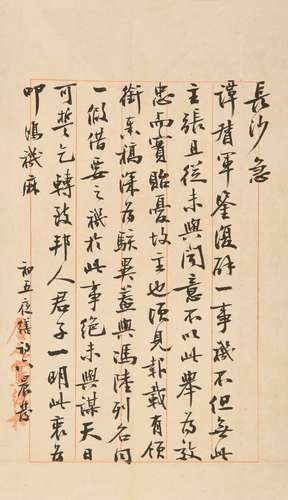 長沙急
譚督軍鑒復辟一事機不但無此
主張且從未與聞意不以此舉為效
忠而實貽憂故主也頃見報載有領
銜奏稿深為駭異蓋與馮陸列名同
一假借要之機於此事絕未與謀天日
可誓乞轉致邦人君子一明此衷為
叩鴻禨麻
初五夜 八晨發